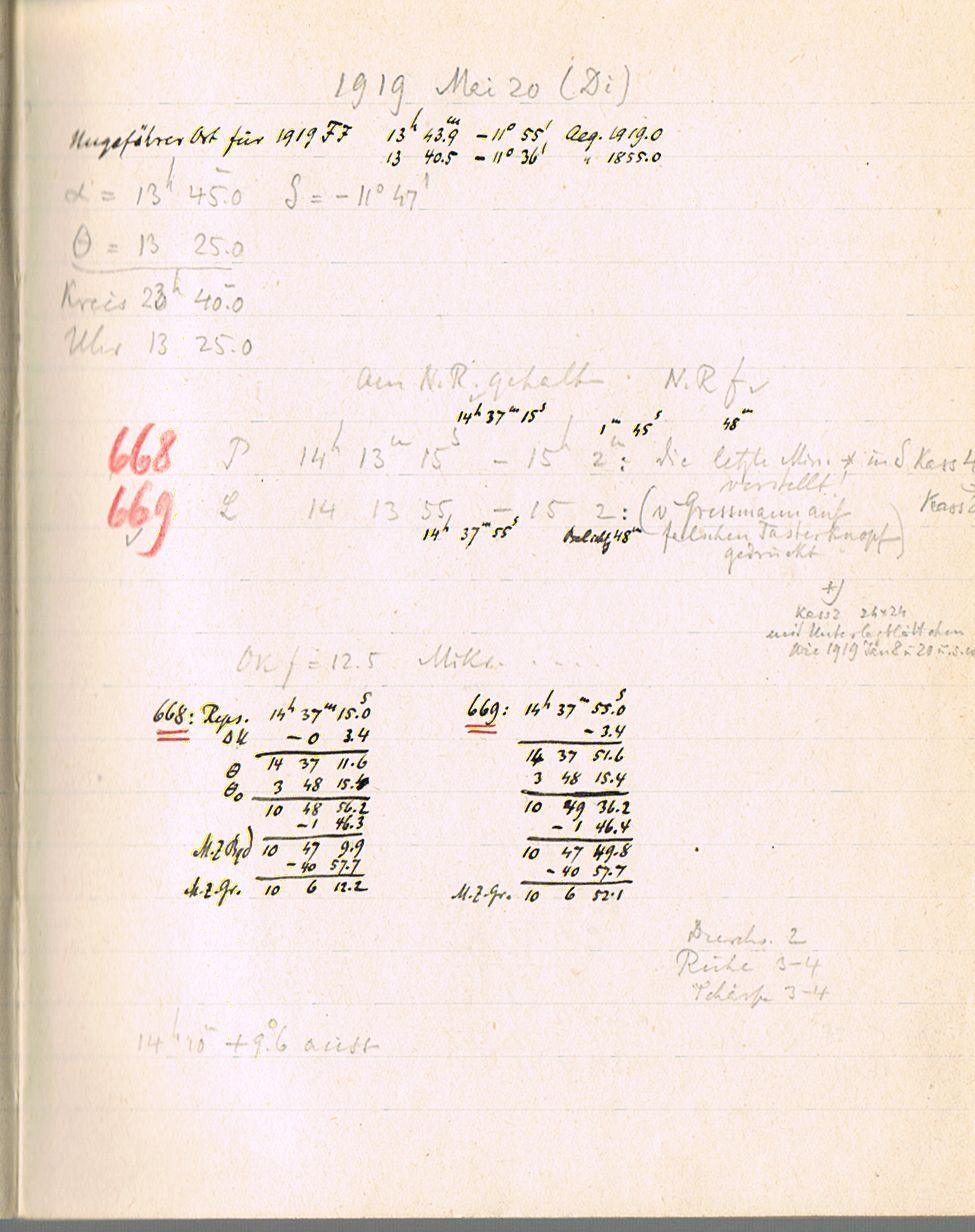 1919 Mai 20 (Di)
Ungefährer Ort für 1919 FF 13h 43.9m -11° 55' Aeq. 1919.0
13 40.5 -11° 36' " 1855.0
α = 13h 45.0m δ = -11° 47'
θ = 13 25.0
Kreis 23h 40.0m
Uhr 13 25.0
am N.R. gehalt. N.R f.
14h 37m 15s 1m 45s 48m
668 P 14h 13m 15s - 15h 2m: die letzte Min. * in δ Kass
verstellt!
669 L 14 13 55 - 15 2: (v Gressmann auf Kass
14h 37m 55s Belichtg 48m falschen Tasterknopf
gedrückt)
+)
Kass 2 24x24
mit Unterlegblättchen
wie 1919 Jan 8 u 20 u.s.w
OK f = 12.5 Mikr. . . . .
668: Reps. 14h 37m 15.0s
ΔU -0 3.4
θ 14 37 11.6
θo 3 48 15.4
10 48 56.2
-1 46.3
M.Z.Bgd) 10 47 9.9
-40 57.7
M.Z.Gr. 10 6 12.2
669: 14h 37m 55.0s
-3.4
14 37 51.6
3 48 15.4
10 49 36.2
-1 46.4
10 47 49.8
-40 57.7
M.Z.Gr. 10 6 52.1
Durchs. 2
Ruhe 3-4
Schärfe 3-4
14h 10m +9.°6 auss